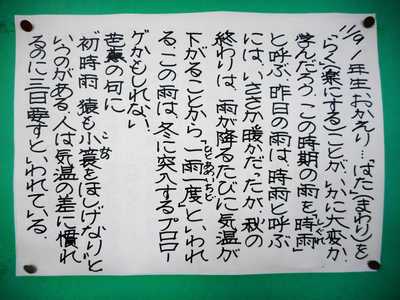 11/9 1年生、おかえり…。はた(まわり)を
らく(楽にする)ことが、いかに大変か、
学んだろう。この時期の雨を「時雨」
しぐれ
と呼ぶ。昨日の雨は、時雨と呼ぶ
には、いささか暖かだったが、秋の
終わりは、雨が降るたびに気温が
下がることから、「一雨一度」といわれ
ひとあめいちど
る。この雨は、冬に突入するプロロー
グかもしれない。
芭蕉の句に
「初時雨 猿も小簑をほしげなり」と
こみの
いうのがある。人は気温の差に慣れ
るのに三日要すといわれている。